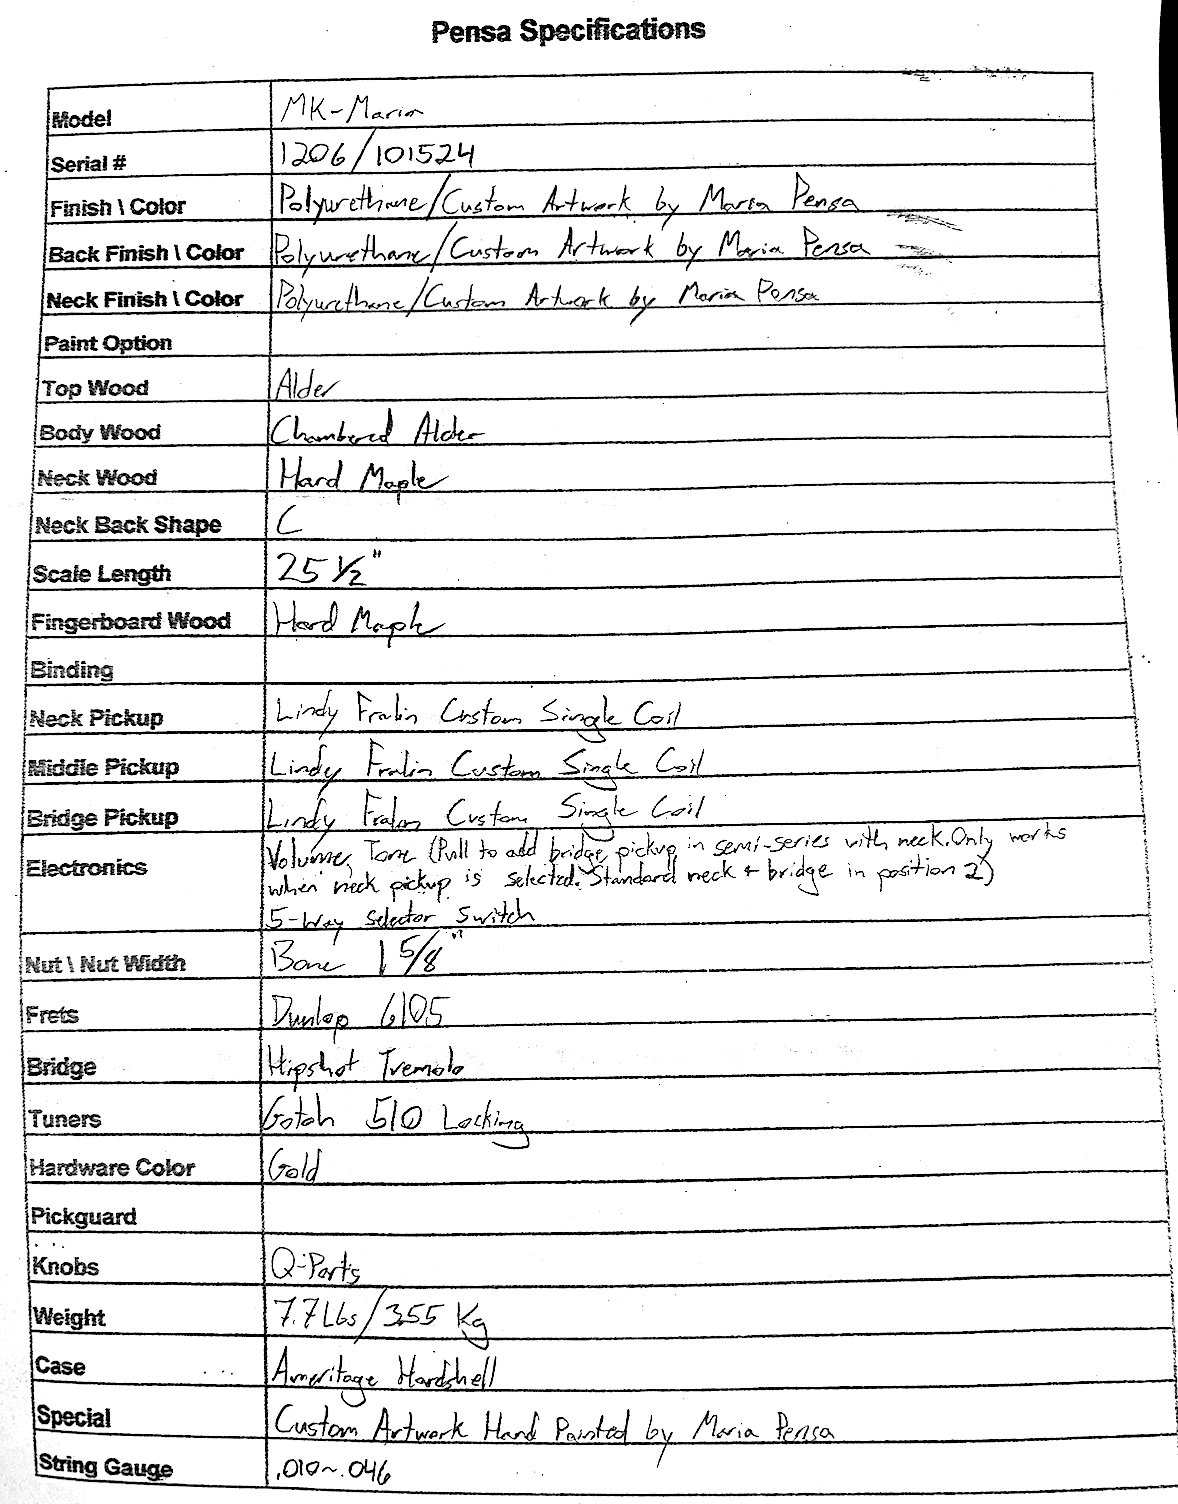 Pensa Specifications
Model MK-Maria
Serial # 1206/101524
Finish \ Color Polyurethane/Custom Artwork by Maria Pensa
Back Finish \ Color Polyurethane/Custom Artwork by Maria Pensa
Neck Finish \ Color Polyurethane/Custom Artwork by Maria Pensa
Paint Option
Top Wood Alder
Body Wood Chambered Alder
Neck Wood Hard Maple
Neck Back Shape C
Scale Length 25 1/2"
Fingerboard Wood Hard Maple
Binding
Neck Pickup Lindy Fralin Custom Single Coil
Middle Pickup Lindy Fralin Custom Single Coil
Bridge Pickup Lindy Fralin Custom Single Coil
Electronics Volume, Tone (Pull to add bridge pickup in semi-series with neck. Only works
when neck pickup is selected. Standard neck + bridge in position 2)
5-Way Selector Switch
Nut \ Nut Width Bone 1 5/8"
Frets Dunlop 6105
Bridge Hipshot Tremolo
Tuners Gotoh 510 Locking
Hardware Color Gold
Pickguard
Knobs Q-Parts
Weight 7.7 Lbs/3.55 Kg
Case Ameritage Hardshell
Special Custom Artwork Hand Painted by Maria Pensa
String Gauge .010~.046